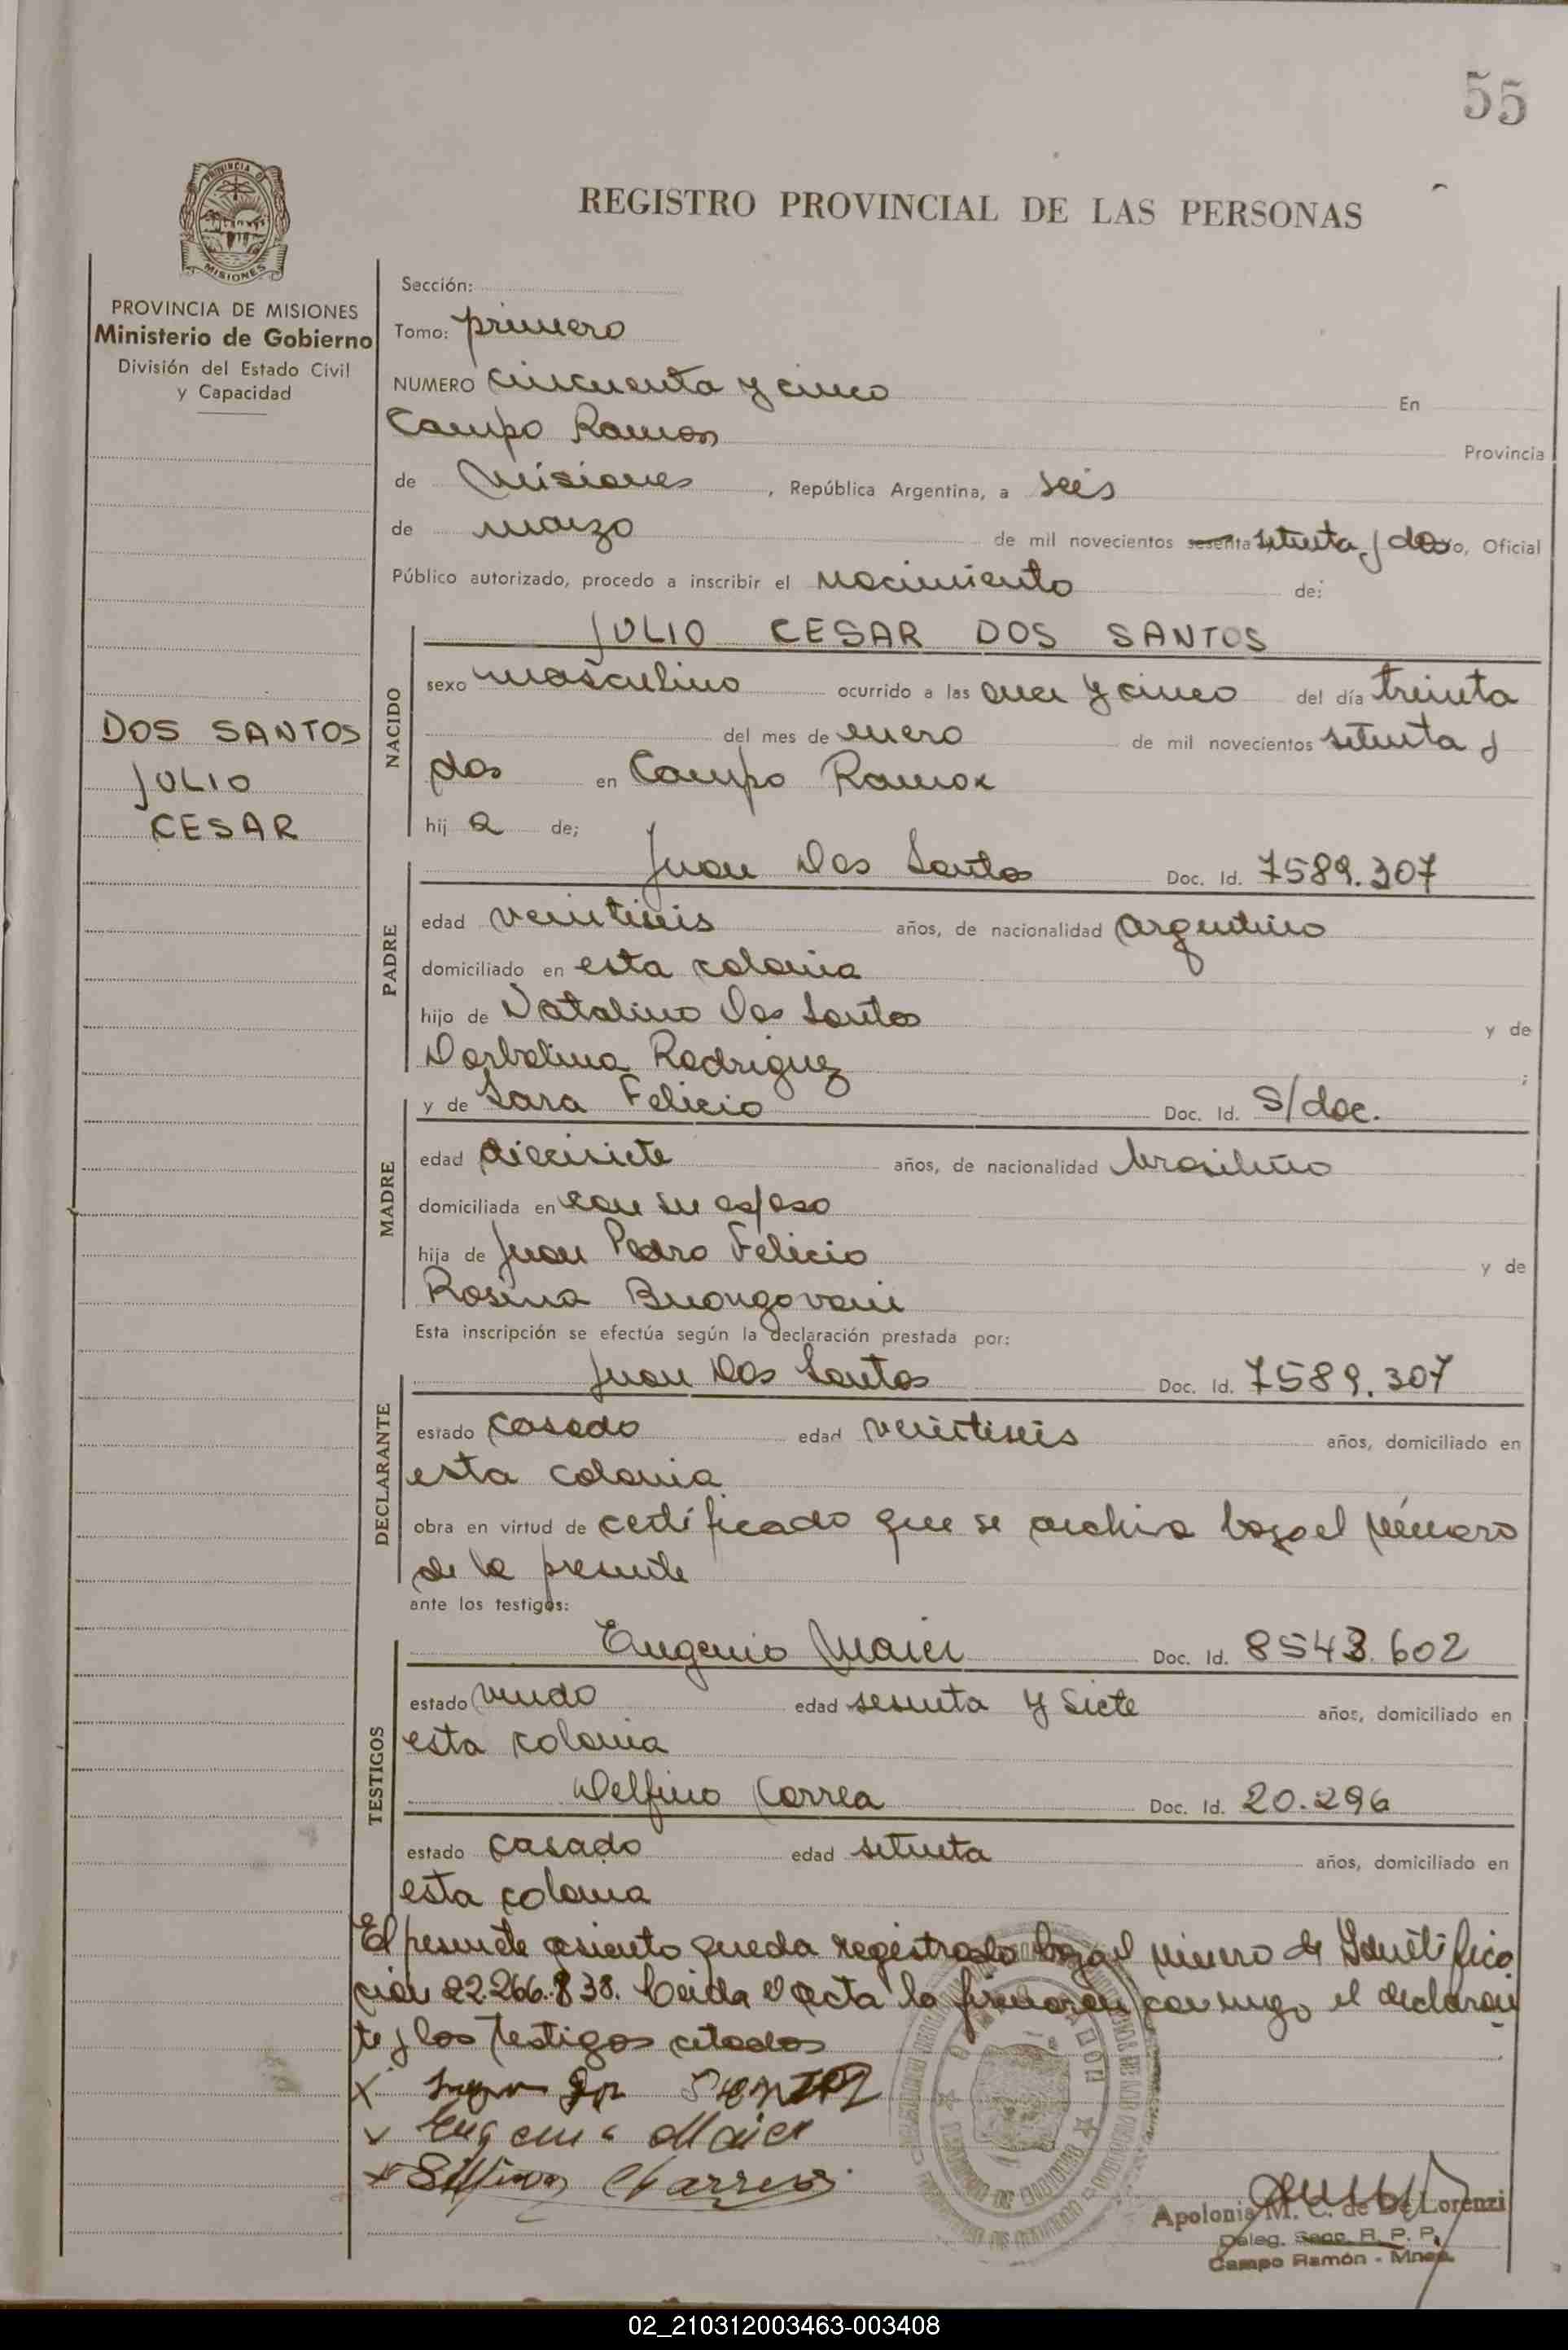 55
REGISTRO PROVINCIAL DE LAS PERSONAS
PROVINCIA DE MISIONES
Ministerio de Gobierno
División del Estado Civil
y Capacidad
DOS SANTOS
JULIO
CESAR
Sección:
Tomo: primero
NUMERO cincuenta y cinco En
Campo Ramon Provincia
de Misiones, República Argentina, a seis
de marzo de mil novecientos sesenta setenta y dos yo, Oficial
Público autorizado, procedo a inscribir el nacimiento de:
NACIDO
JULIO CESAR DOS SANTOS
sexo masculino ocurrido a las once y cinco del día treinta
del mes de enero de mil novecientos setenta y
dos en Campo Ramon
hij o de;
PADRE
Juan Dos Santos Doc. Id. 7589.307
edad veintiseis años, de nacionalidad argentino
domiciliado en esta colonia
hijo de Natalino Dos Santos y de
Dorbalina Rodriguez ;
MADRE
y de Sara Felicio Doc. Id. S/doc.
edad diecisiete años, de nacionalidad brasileña
domiciliada en con su esposo
hija de Juan Pedro Felicio y de
Rosina Buongovani
Esta inscripción se efectúa según la declaración prestada por:
DECLARANTE
Juan Dos Santos Doc. Id. 7589.307
estado casado edad veintiseis años, domiciliado en
esta colonia
obra en virtud de certificado que se archiva bajo el número
de la presente
ante los testigos:
TESTIGOS
Eugenio Maier Doc. Id. 8543.602
estado viudo edad sesenta y siete años, domiciliado en
esta colonia
Delfino Correa Doc. Id. 20.296
estado casado edad setenta años, domiciliado en
esta colonia
El presente asiento queda registrado bajo el número de Identifica
ción 22.266.838. Leida el acta la firmaron conmigo el declaran
te y los testigos citados
X
x Eugenio Maier
x
Apolonia M. C. de De Lorenzi
Deleg. Secc. R. P. P.
Campo Ramón - Mnes.
02_210312003463-003408